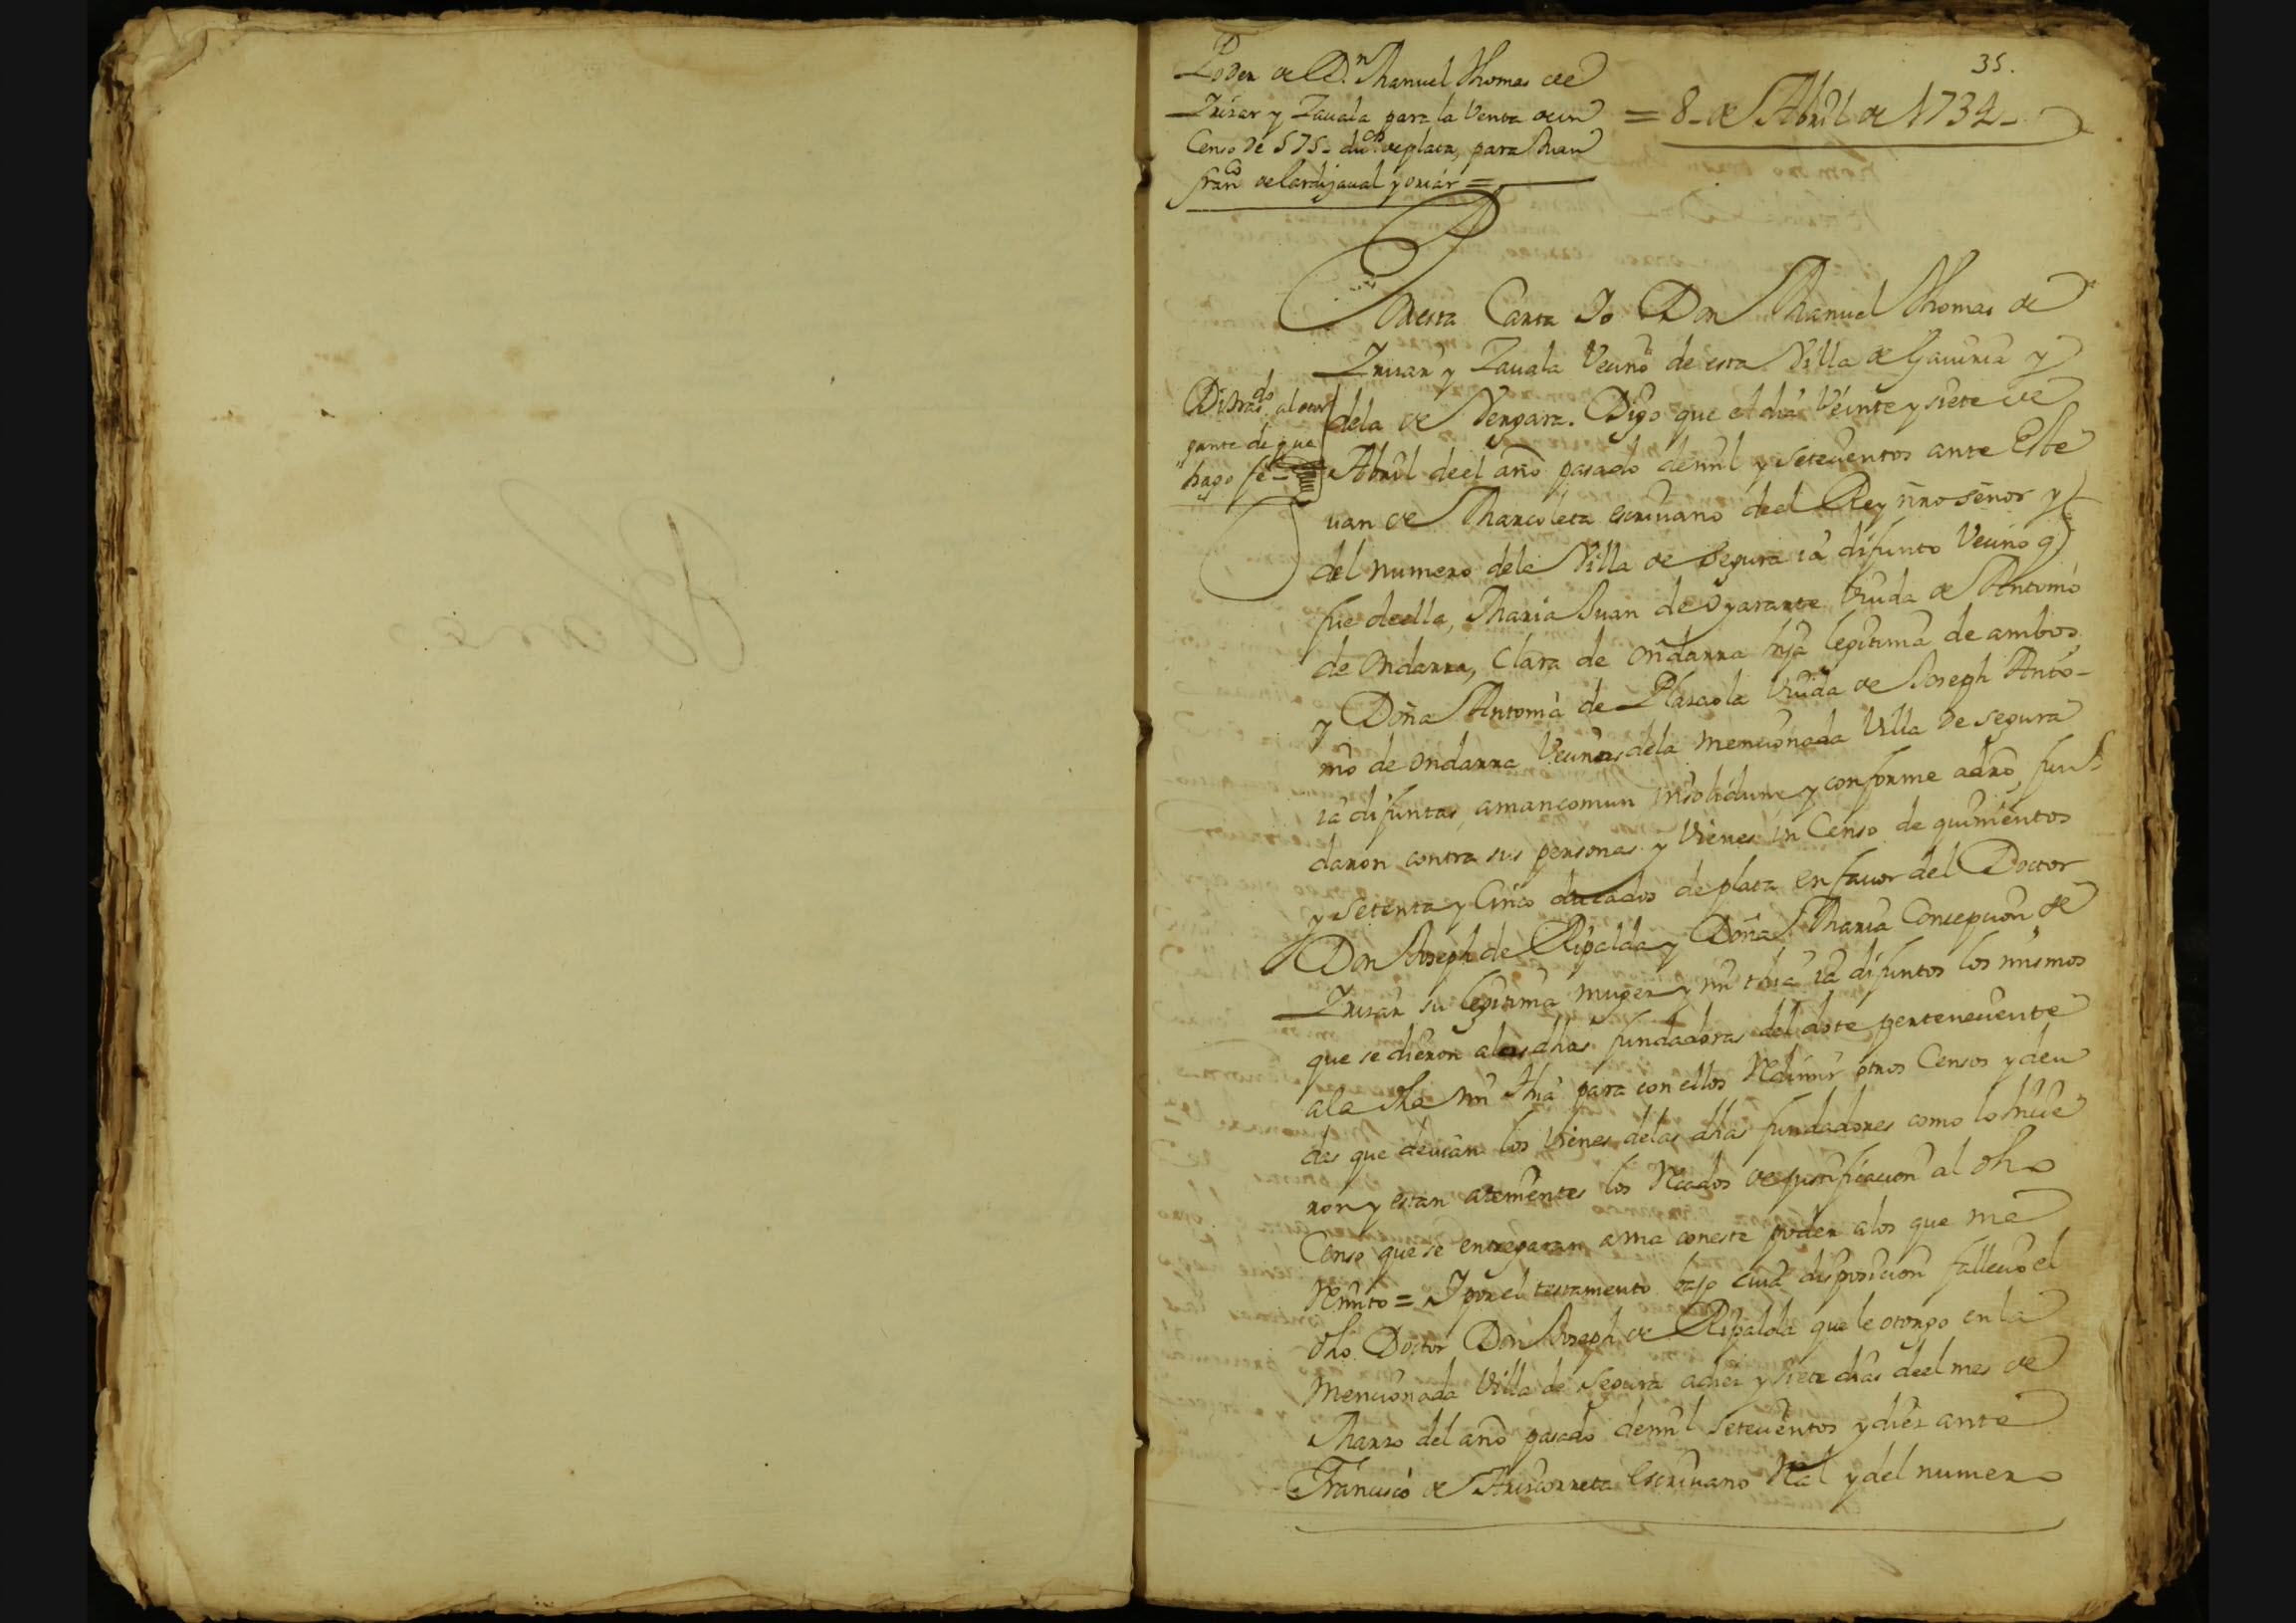 35.
Poder de Dn. Manuel Thomas de
Yrizar y Zauala para la Venta de un
Censo de 575 - ducos. de plata, para Juan
franco de Lardizaual y oriar =
= 8 - de Abril de 1734 -
Por esta Carta Yo Don Manuel Thomas de
Yrizar y Zauala Vecino de esta Villa de Gauiria y
dela de Vergara. Digo que el dia Veinte y siete de
Abril de el año pasado de mil y setecientos ante Este
uan de Marcoleta escriuano de el Rey nro señor y
del numero dela Villa de Segura ia difunto Vecino q
fue de ella, Maria Juan de oyarante Viuda de Antonio
de Ondarra, Clara de Ondarra hija legitima de ambos
y Doña Antonia de Plazaola Viuda de Joseph Anto-
nio de Ondarra Vecinas dela mencionada Villa de Segura
ia difuntas, amancomun insolidum y conforme a dro, fun-
daron contra sus personas y Vienes un Censo de quinientos
y Setenta y Cinco ducados de plata en fauor del Doctor
Don Joseph de Ripalda y Doña Maria Concepcion de
Yrizar su legitima muger y mi thia ia difuntos los mismos
que se dieron alas dhas fundadoras del dote perteneciente
ala dha mi thia para con ellos Redimir otros Censos y deu
das que deuian los Vienes delas dhas fundadores como lo hicie
ron y estan los Recados de justificacion al dho
Censo que se entregaran a una con este poder alos que me
Remito = Y por el testamento bajo cuia disposicion fallecio el
dho Doctor Don Joseph de Ripalda que le otorgo en la
mencionada Villa de Segura a diez y siete dias de el mes de
Marzo del año pasado de mil setecientos y diez ante
Francisco de Ariscorreta escriuano Real y del numero
Di trasdo. al otor
gante de que
hago fe -